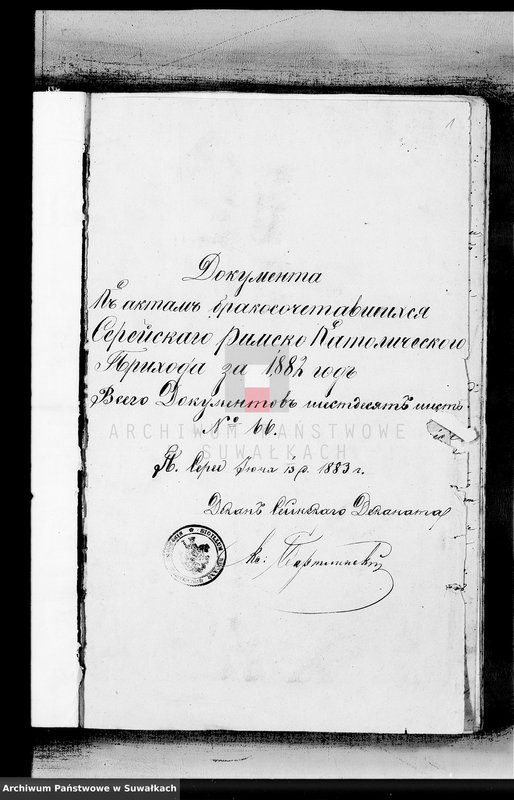 1
Документа
Къ актамъ бракосочетавшихся
Серейскаго Римско Католического
Прихода за 1882 годъ
Всего Документовъ шестдесятъ шесть
№ 66.
ARCHIWUM PAŃSTWOWE
W SUWAŁKACH
П. Сереи Іюня 13 д. 1883 г.
Деканъ Сейнскаго Деканата
Кс:
Archiwum Państwowe w Suwałkach